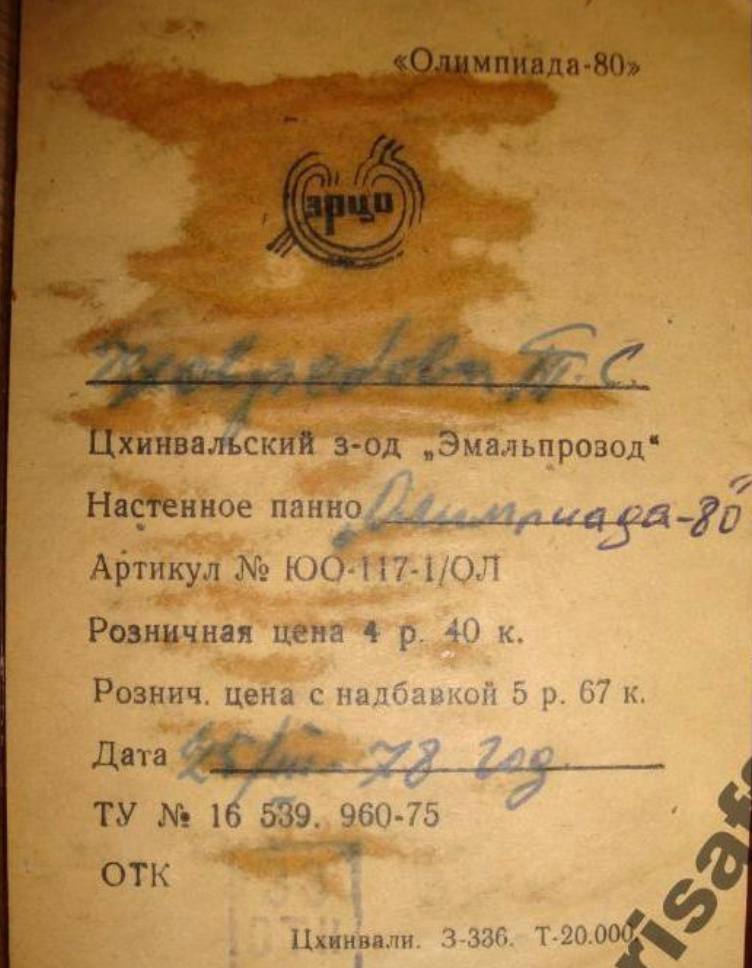 «Олимпиада-80»
эрцо
Т. С.
Цхинвальский з-од „Эмальпровод“
Настенное панно „Олимпиада-80"
Артикул № ЮО-117-1/ОЛ
Розничная цена 4 р. 40 к.
Рознич. цена с надбавкой 5 р. 67 к.
Дата 25/III-78 год.
ТУ № 16 539. 960-75
ОТК
Цхинвали. З-336. Т-20.000.
risaf